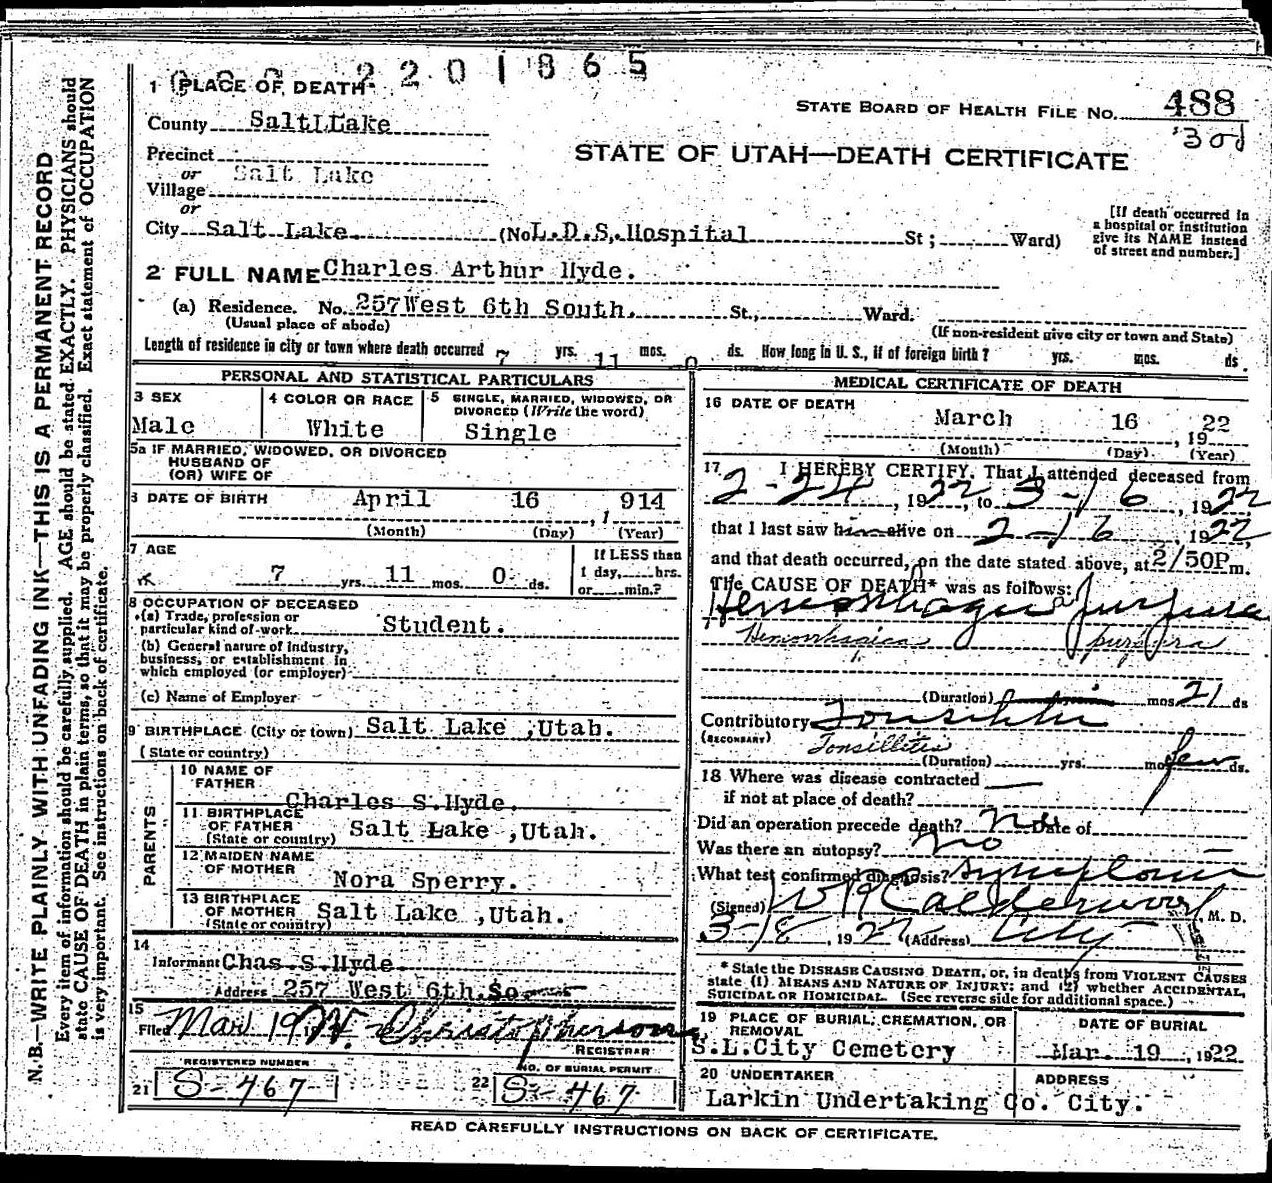 2201865
1 PLACE OF DEATH
STATE BOARD OF HEALTH FILE No. 488
County Salt Lake
Precinct
STATE OF UTAH—DEATH CERTIFICATE
or Salt Lake
Village
or
City Salt Lake (No. L.D.S. Hospital St; Ward)
[If death occurred in
a hospital or institution
give its NAME instead
of street and number.]
2 FULL NAME Charles Arthur Hyde.
(a) Residence. No. 257 West 6th South. St., Ward.
(Usual place of abode) (If non-resident give city or town and State)
Length of residence in city or town where death occurred 7 yrs. 11 mos. 0 ds. How long in U. S., if of foreign birth? yrs. mos. ds.
PERSONAL AND STATISTICAL PARTICULARS
3 SEX
Male
4 COLOR OR RACE
White
5 SINGLE, MARRIED, WIDOWED, OR
DIVORCED (Write the word)
Single
5a IF MARRIED, WIDOWED, OR DIVORCED
HUSBAND OF
(OR) WIFE OF
6 DATE OF BIRTH April 16 , 1 914
(Month) (Day) (Year)
7 AGE
7 yrs. 11 mos. 0 ds.
If LESS than
1 day, hrs.
or min.?
8 OCCUPATION OF DECEASED
(a) Trade, profession or
particular kind of work Student.
(b) General nature of industry,
business, or establishment in
which employed (or employer)
(c) Name of Employer
9 BIRTHPLACE (City or town) Salt Lake ,Utah.
(State or country)
PARENTS
10 NAME OF
FATHER
Charles S.Hyde.
11 BIRTHPLACE
OF FATHER Salt Lake ,Utah.
(State or country)
12 MAIDEN NAME
OF MOTHER
Nora Sperry.
13 BIRTHPLACE
OF MOTHER Salt Lake ,Utah.
(State or country)
14
Informant Chas.S.Hyde
Address 257 West 6th.So
15
Filed Mar 19 W. Christopherson
REGISTRAR
REGISTERED NUMBER
21 S-467
NO. OF BURIAL PERMIT
22 S-467
MEDICAL CERTIFICATE OF DEATH
16 DATE OF DEATH
March 16 , 19 22
(Month) (Day) (Year)
17 I HEREBY CERTIFY, That I attended deceased from
2-24 , 1922, to 3-16 , 1922
that I last saw him alive on 2-16 , 1922,
and that death occurred, on the date stated above, at 2/50P m.
The CAUSE OF DEATH* was as follows:
Hemorrhagica purpura
Hemorrhagica purpura
(Duration) mos 21 ds
Contributory Tonsillitis
(SECONDARY) Tonsillitis
(Duration) yrs. mos few ds.
18 Where was disease contracted
if not at place of death?
Did an operation precede death? No Date of
Was there an autopsy? No
What test confirmed diagnosis? Symptoms
(Signed) W R Calderwood, M. D.
3-18, 1922 (Address) City
* State the DISEASE CAUSING DEATH, or, in deaths from VIOLENT CAUSES
state (1) MEANS AND NATURE OF INJURY; and (2) whether ACCIDENTAL,
SUICIDAL OR HOMICIDAL. (See reverse side for additional space.)
19 PLACE OF BURIAL, CREMATION, OR
REMOVAL
S.L.City Cemetery
DATE OF BURIAL
Mar. 19 , 1922.
20 UNDERTAKER
Larkin Undertaking Co. City.
ADDRESS
READ CAREFULLY INSTRUCTIONS ON BACK OF CERTIFICATE.
N. B.—WRITE PLAINLY WITH UNFADING INK—THIS IS A PERMANENT RECORD
Every item of information should be carefully supplied. AGE should be stated EXACTLY. PHYSICIANS should
state CAUSE OF DEATH in plain terms, so that it may be properly classified. Exact statement of OCCUPATION
is very important. See instructions on back of certificate.